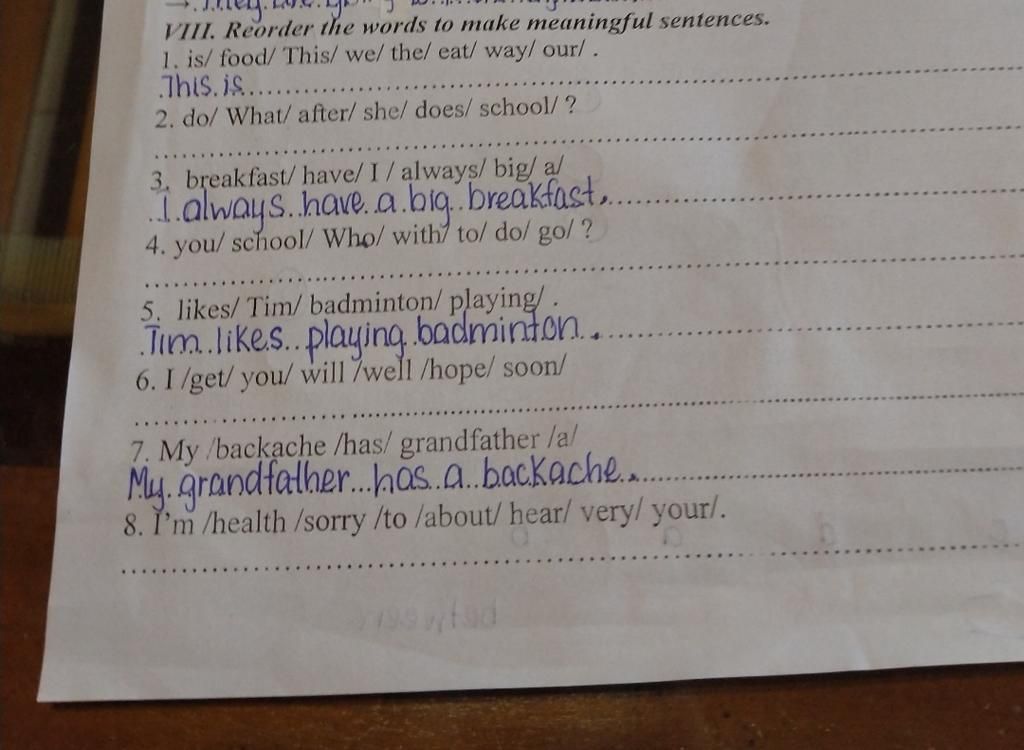 VIII. Reorder the words to make meaningful sentences.
1. is/ food/ This/ we/ the/ eat/ way/ our/ .
This is
2. do/ What/ after/ she/ does/ school/ ?
3. breakfast/ have/ I / always/ big/ a/
I always have a big breakfast.
4. you/ school/ Who/ with/ to/ do/ go/ ?
5. likes/ Tim/ badminton/ playing/ .
Tim likes playing badminton.
6. I /get/ you/ will /well /hope/ soon/
7. My /backache /has/ grandfather /a/
My grandfather has a backache.
8. I'm /health /sorry /to /about/ hear/ very/ your/.